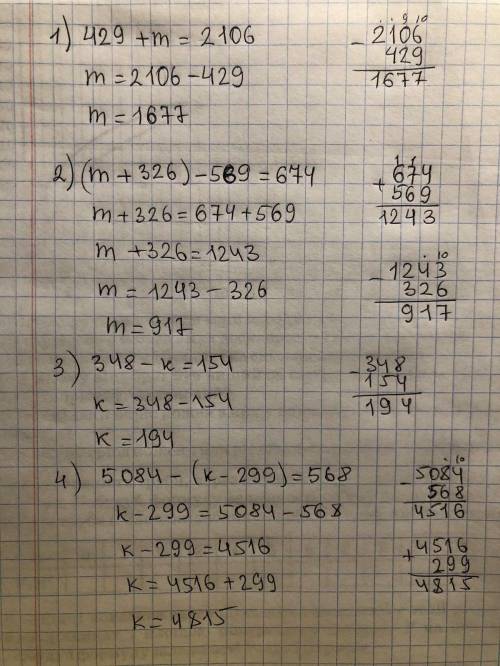 1) 429 + m = 2106
m = 2106 - 429
m = 1677
. . 9 10
- 2106
429
1677
2) (m + 326) - 569 = 674
m + 326 = 674 + 569
m + 326 = 1243
m = 1243 - 326
m = 917
1 1
+ 674
569
1243
. 10
- 1243
326
917
3) 348 - к = 154
к = 348 - 154
к = 194
- 348
154
194
4) 5084 - (к - 299) = 568
к - 299 = 5084 - 568
к - 299 = 4516
к = 4516 + 299
к = 4815
. 10
- 5084
568
4516
+ 4516
299
4815